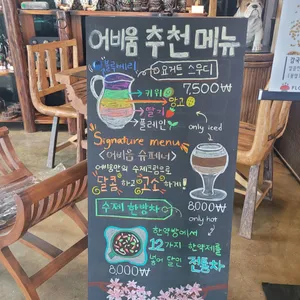 어비움 추천 메뉴
블루베리
요거트 스무디
키위
망고
7500₩
딸기
플레인
only iced
Signature menu
<어비움 슈페너>
어비움만의 수제크림으로
달콤하고 고소하게!
8,000₩
수제 한방차
only hot
한약방에서
12가지 한약재를
넣어 달인 전통차
8,000₩